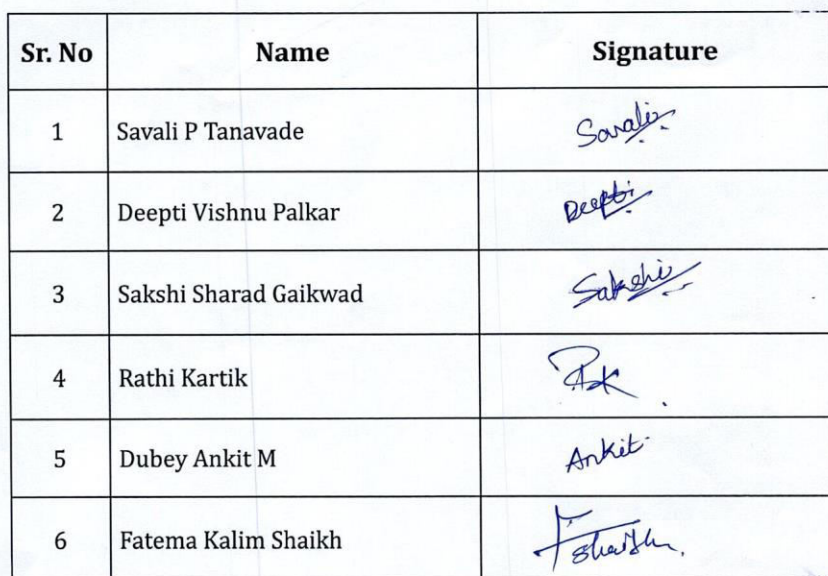 Sr. No Name Signature
1 Savali P Tanavade Savali
2 Deepti Vishnu Palkar Deepti
3 Sakshi Sharad Gaikwad Sakshi
4 Rathi Kartik
5 Dubey Ankit M Ankit
6 Fatema Kalim Shaikh FShaikh